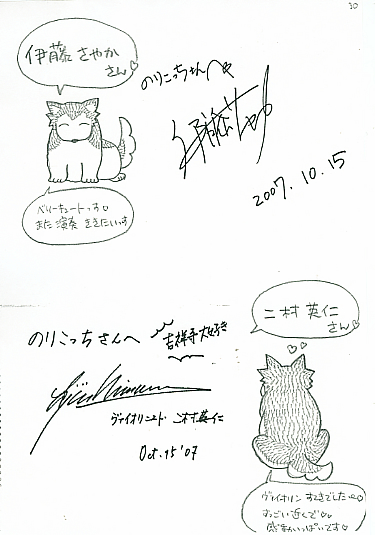 30
伊藤 さやか
さん♡
のりこっちさんへ♥
2007.10.15
ベリーキュートっす♡
また 演奏 ききたいっす
二村 英仁
さん♡
のりこっちさんへ
吉祥寺大好き
ヴァイオリニスト 二村英仁
Oct. 15 '07
ヴァイオリン すてきでした
すっごい近くで♡
感まいっぱいです